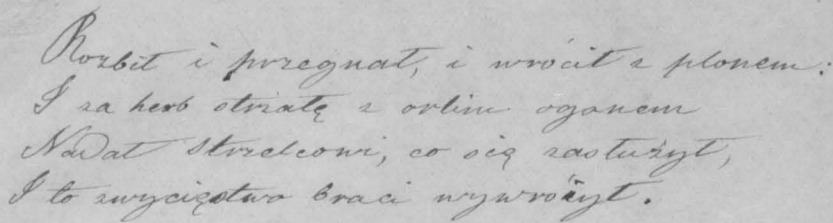 Rozbił i przegnał, i wrócił z plonem:
I za herb strzałę z orlim ogonem
Nadał Strzelcowi, co się zasłużył,
I to zwycięstwo braci wywróżył.